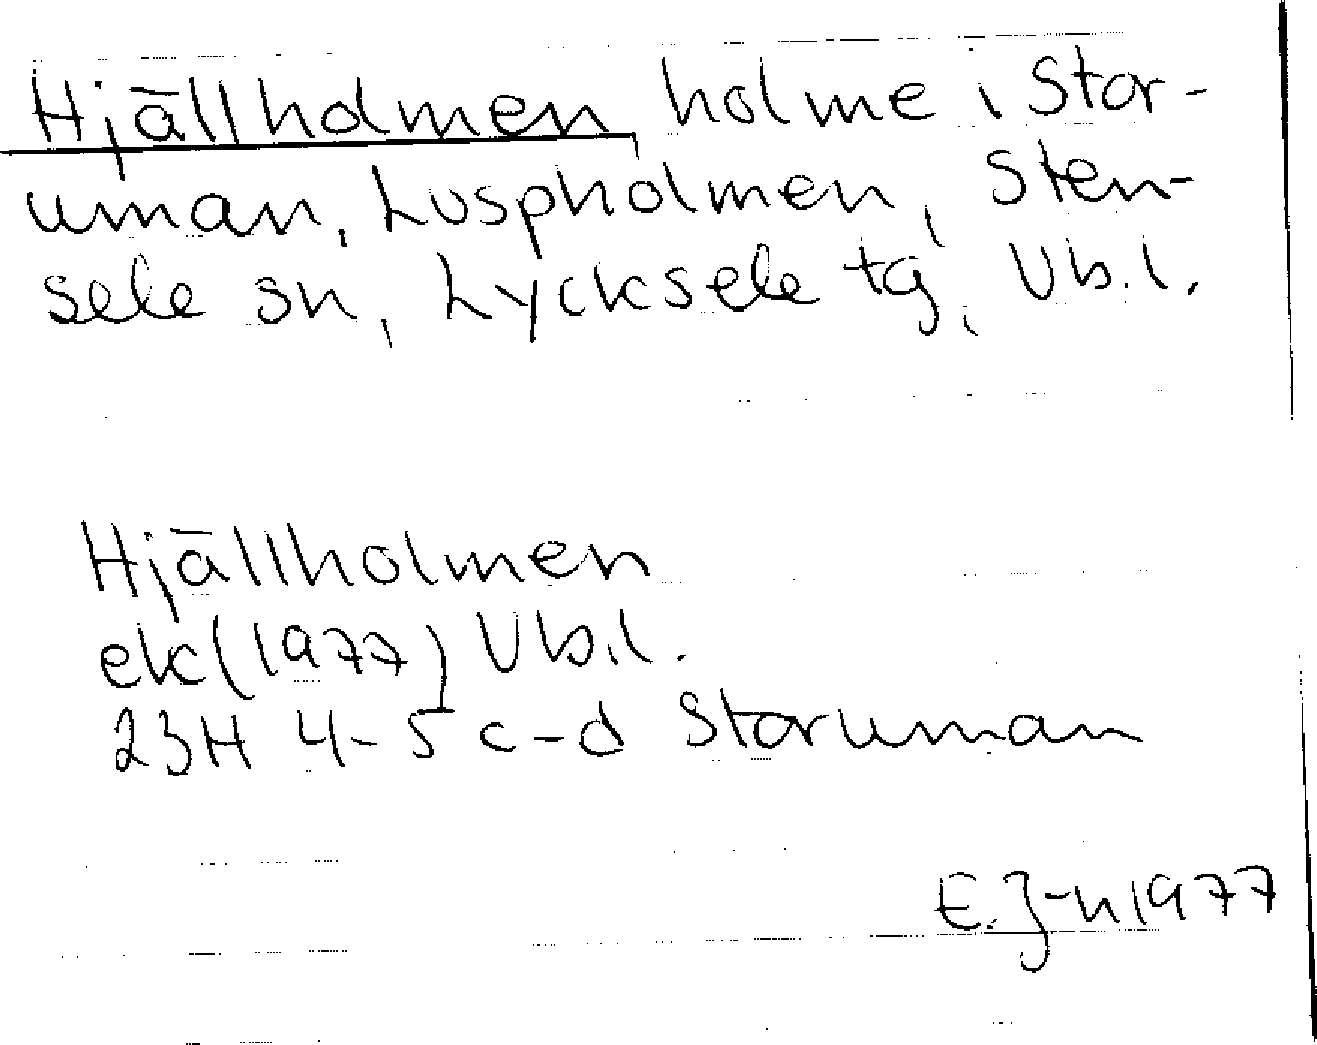 Hjällholmen holme i Stor-
uman, Luspholmen, Sten-
sele sn, Lycksele tg, Vb.l.
Hjällholmen
ek (1977) Vb.l.
23H 4-5 c-d Storuman
E.J-n 1977